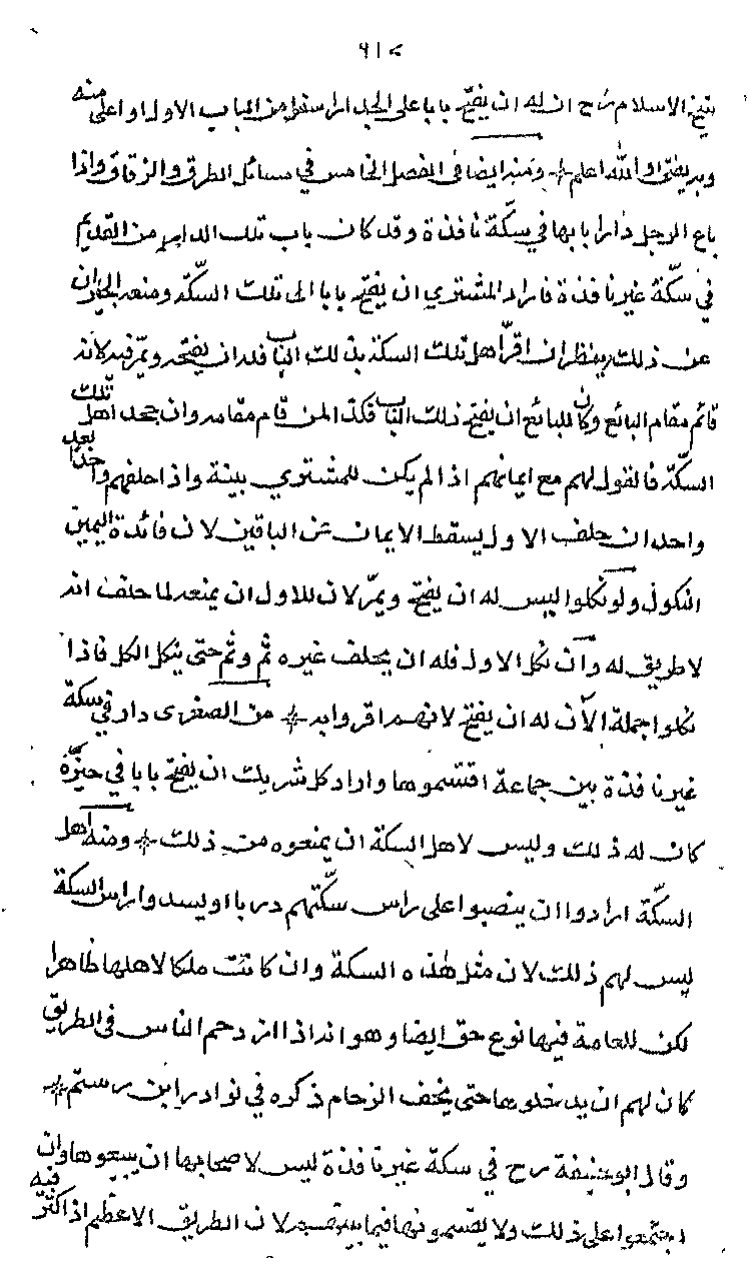 شيخ الاسلام رح ان له ان يفتح بابا على الجدار اسفل من الباب الاول او اعلى منه
وبه يفتى والله اعلم ومنه ايضا فى الفصل الخامس في مسائل الطرق والزقاق واذا
باع الرجل دارا بابها في سكّة نافذة وقد كان باب تلك الدار من القديم
في سكّة غير نافذة فاراد المشتري ان يفتح بابا الى تلك السكّة ومنعه الجيران
عن ذلك ينظر ان اقرّ اهل تلك السكة بذلك الباب فله ان يفتحه ويمرّ فيه لانه
قائم مقام البائع وكان للبائع ان يفتح ذلك الباب فكذا لمن قام مقامه وان جحد اهل تلك
السكّة فالقول لهم مع ايمانهم اذا لم يكن للمشتري بينة واذا حلفهم واحدا بعد
واحد ان حلف الاول يسقط الايمان عن الباقين لان فائدة اليمين
النكول ولو نكلوا ليس له ان يفتح ويمرّ لان للاول ان يمنعه لما حلف انه
لا طريق له وان نكل الاول فله ان يحلف غيره ثم وثم حتى ينكل الكل فاذا
نكلوا جملة الآن له ان يفتح لانهم اقروا به من الصغرى دار في سكة
غير نافذة بين جماعة اقتسموها واراد كل شريك ان يفتح بابا في حيزه
كان له ذلك وليس لاهل السكة ان يمنعوه من ذلك ومنه اهل
السكّة ارادوا ان ينصبوا على راس سكّتهم دربا او يسدوا راس السكة
ليس لهم ذلك لان مثل هذه السكة وان كانت ملكا لاهلها ظاهرا
لكن للعامة فيها نوع حق ايضا وهو انه اذا ازدحم الناس فى الطريق
كان لهم ان يدخلوها حتى يخف الزحام ذكره في نوادر ابن رستم
وقال ابو حنيفة رح في سكة غير نافذة ليس لاصحابها ان يبيعوها وان
اجتمعوا على ذلك ولا يقسمونها فيما بينهم لان الطريق الاعظم اذا كثر فيه